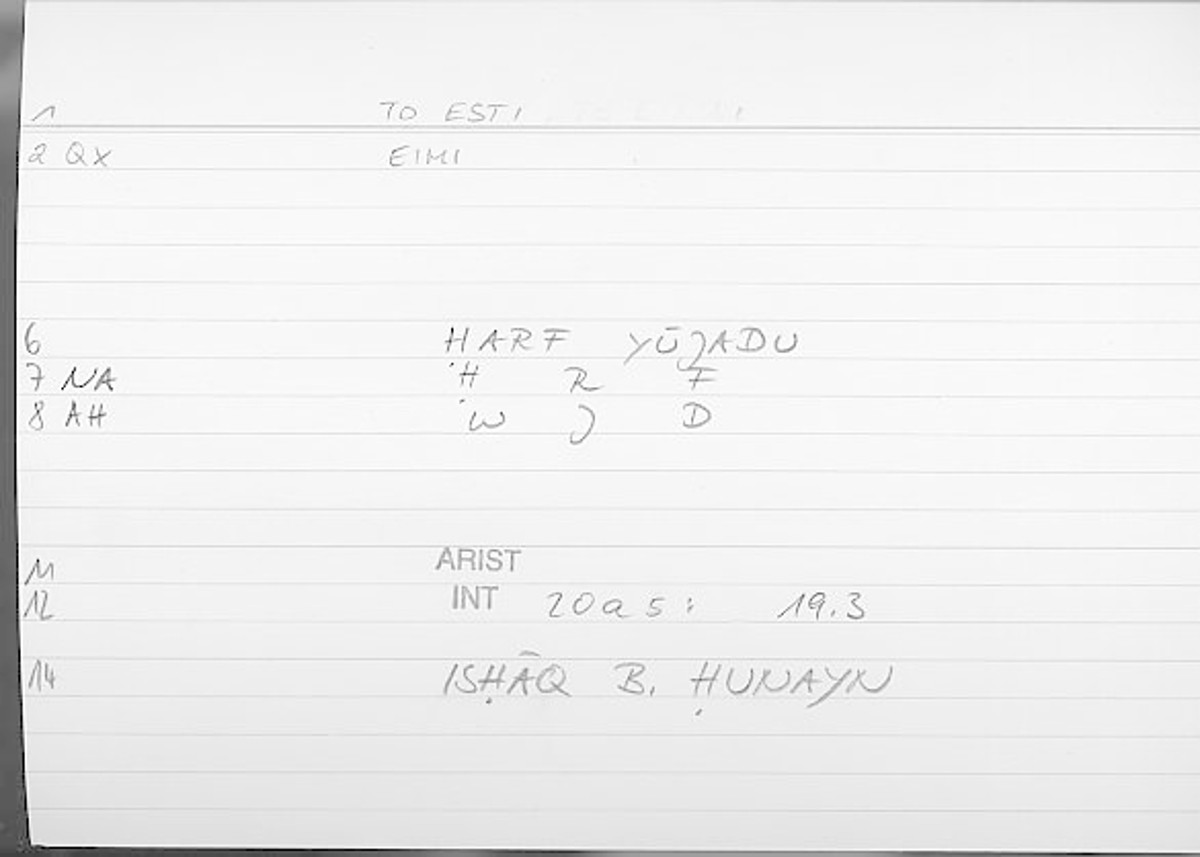 1 TO ESTI
2 QX EIMI
6 ḤARF YŪJADU
7 NA Ḥ R F
8 AH W J D
11 ARIST
12 INT 20a5: 19.3
14 ISḤĀQ B. ḤUNAYN